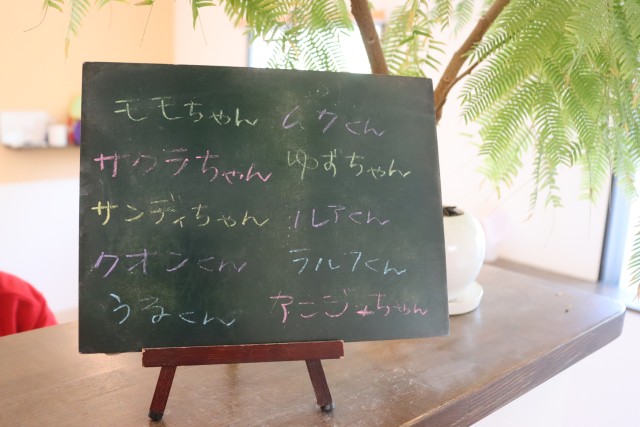 モモちゃん ムクくん
サクラちゃん ゆずちゃん
サンディちゃん ルアくん
クオンくん ラルフくん
うるくん アンジーちゃん